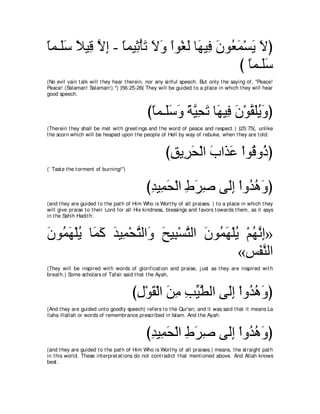 (لاَ يَسْمَعُونَ فِيهَا لَغْواً وَلاَ تَأْثِيماً - إِلاَّ قِيلاً سَلَـماً
سَلَـماً )
(No evil vain talk will they hear therein, nor any sinful speech. But only the saying of, "Peace!
Peace! (Salaman! Salaman!).") )56:25-26( They will be guided to a place in which they will hear
good speech.
(وَيُلَقَّوْنَ فِيهَا تَحِيَّةً وَسَلَـماً)
(Therein they shall be met with greetings and the word of peace and respect.) )25:75(, unlike
the scorn which will be heaped upon the people of Hell by way of rebuke, when they are told:
(ذُوقُواْ عَذَابَ الْحَرِيقِ)
(`Taste the torment of burning!'')
(وَهُدُواْ إِلَى صِرَطِ الْحَمِيدِ)
(and they are guided to the path of Him Who is Worthy of all praises. ) to a place in which they
will give praise to their Lord for all His kindness, blessings and favors towards them, as it says
in the Sahih Hadith:
«إِنَّهُمْ يُلْهَمُونَ التَّسْبِيحَ وَالتَّحْمِيدَ كَمَا يُلْهَمُونَ
النَّفَس»
(They will be inspired with words of glorification and praise, just as they are inspired with
breath.) Some scholars of Tafsir said that the Ayah,
(وَهُدُواْ إِلَى الطَّيِّبِ مِنَ الْقَوْلِ)
(And they are guided unto goodly speech) refers to the Qur'an; and it was said that it means La
ilaha illallah or words of remembrance prescribed in Islam. And the Ayah:
(وَهُدُواْ إِلَى صِرَطِ الْحَمِيدِ)
(and they are guided to the path of Him Who is Worthy of all praises.) means, the straight path
in this world. These interpretations do not contradict that mentioned above. And Allah knows
best.